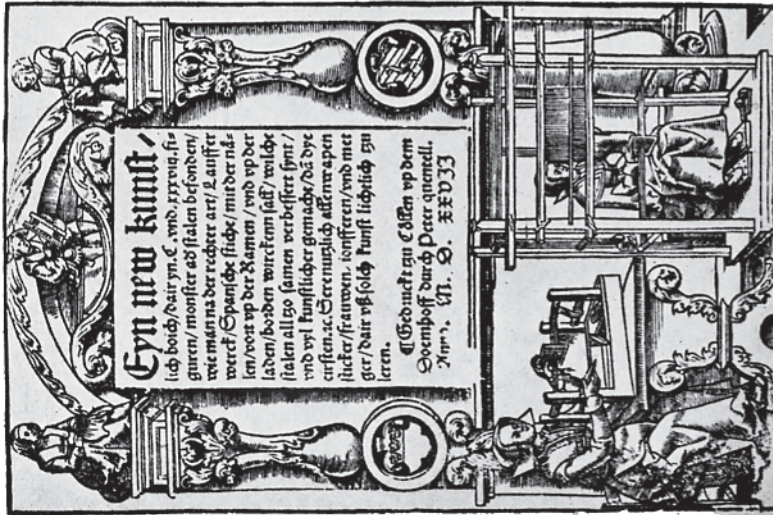 Eyn new kunst,
lich boich/dair yn. C. vnd. xxxviij. fi-
guren/monster ad stalen befonden/
wie man na der rechter art/Lauffer
werck/Spansche stiche/mit der nä-
len/vort vp der Ramen/vnd vp der
laden/borden wirckenn sall/wilche
stalen all tzo samen verbessert synt/
vnd vyl kunstlicher gemacht/dā dye
eirsten. ꝛc. Sere nutzlich allen wapen
sticker/frauwen. ionfferen/vnd met
ger/dair vß solch kunst lichtlich tzu
leren.
¶ Gedruckt tzu Cöllen vp dem
Doemhoff durch Peter quentell.
Anno. M. D. XXVII